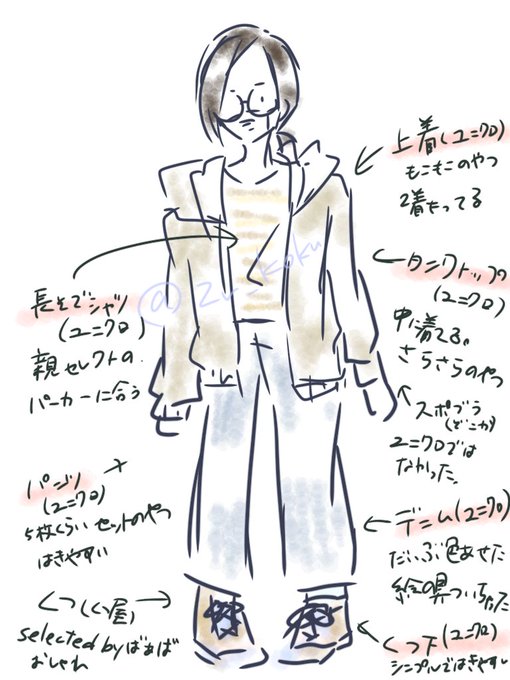 上着(ユニクロ)
もこもこのやつ
2着もってる
タンクトップ
(ユニクロ)
中に着てる。
さらさらのやつ
スポブラ
(どこか)
ユニクロでは
なかった。
デニム(ユニクロ)
だいぶ色あせた
絵の具ついちゃった
くつ下(ユニクロ)
シンプルではきやすい
長そでシャツ
(ユニクロ)
親セレクトの
パーカーに合う
パンツ
(ユニクロ)
5枚くらいセットのやつ
はきやすい
くつ(くつ屋)
selected byばぁば
おしゃれ